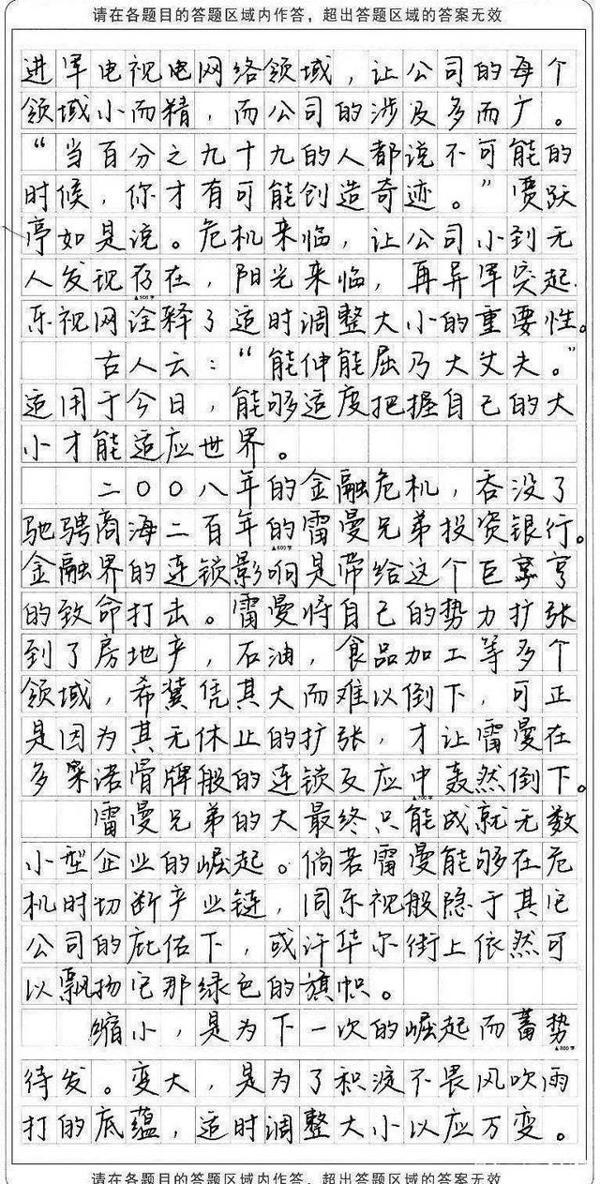 请在各题目的答题区域内作答，超出答题区域的答案无效
进军电视电网络领域，让公司的每个
领域小而精，而公司的涉及多而广。
“当百分之九十九的人都说不可能的
时候，你才有可能创造奇迹。”贾跃
亭如是说。危机来临，让公司小到无
人发现存在，阳光来临，再异军突起.
乐视网诠释了适时调整大小的重要性。
古人云：“能伸能屈乃大丈夫。”
适用于今日，能够适度把握自己的大
小才能适应世界。
二〇〇八年的金融危机，吞没了
驰骋商海二百年的雷曼兄弟投资银行。
金融界的连锁影响是带给这个巨亨
的致命打击。雷曼将自己的势力扩张
到了房地产，石油，食品加工等多个
领域，希冀凭其大而难以倒下，可正
是因为其无休止的扩张，才让雷曼在
多米诺骨牌般的连锁反应中轰然倒下。
雷曼兄弟的大最终只能成就无数
小型企业的崛起。倘若雷曼能够在危
机时切断产业链，同乐视般隐于其它
公司的庇佑下，或许华尔街上依然可
以飘扬它那绿色的旗帜。
缩小，是为下一次的崛起而蓄势
待发。变大，是为了积淀不畏风吹雨
打的底蕴，适时调整大小以应万变。
请在各题目的答题区域内作答，超出答题区域的答案无效